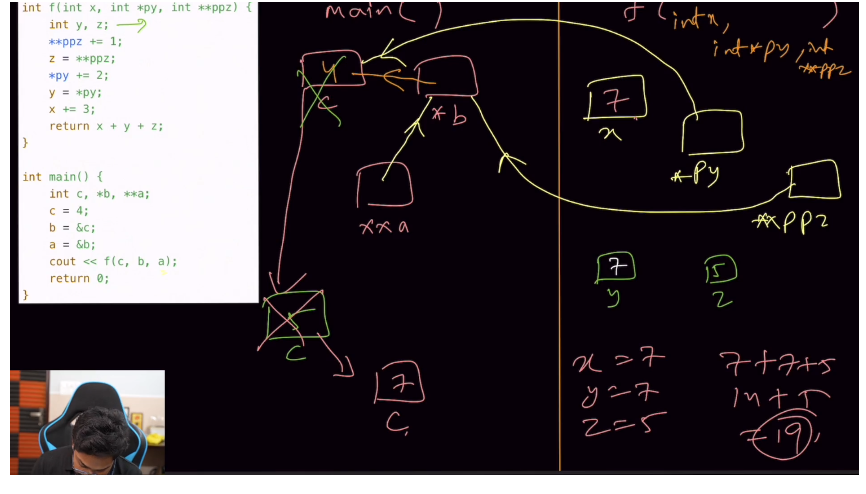 int f(int x, int *py, int **ppz) {
int y, z;
**ppz += 1;
z = **ppz;
*py += 2;
y = *py;
x += 3;
return x + y + z;
}
int main() {
int c, *b, **a;
c = 4;
b = &c;
a = &b;
cout << f(c, b, a);
return 0;
}
main( )
4
c
*b
**a
5
c
7
c
f(int x,
int *py, int
**ppz
)
7
x
*py
**ppz
7
y
5
z
x = 7
y = 7
z = 5
7+7+5
14 + 5
= 19